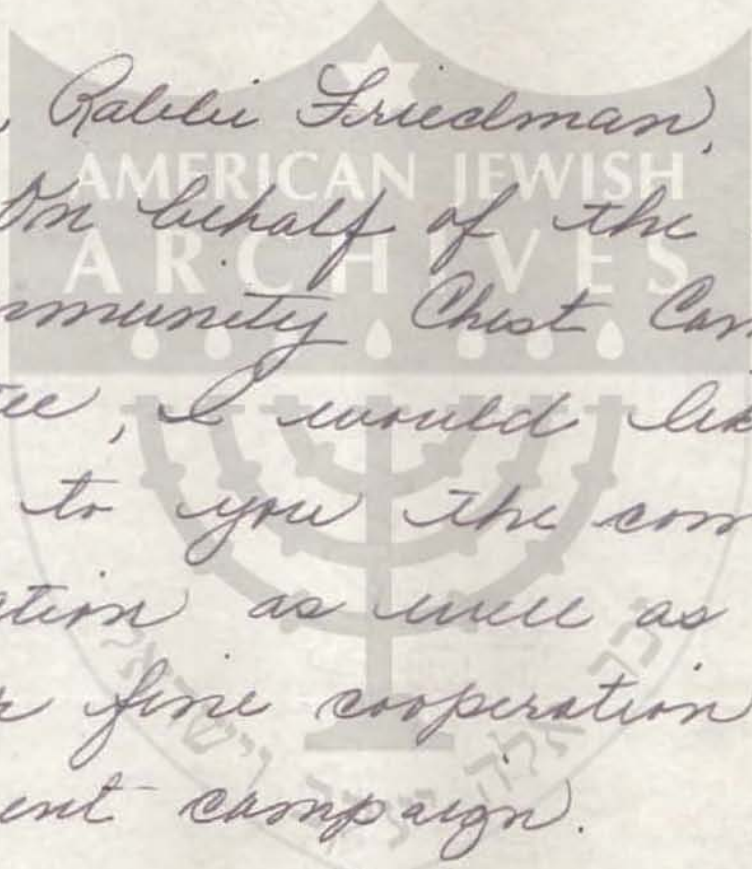 , Rabbi Friedman,
AMERICAN JEWISH
On behalf of the
ARCHIVES
mmunity Chest Cam
tee, I would lik
to you the com
ation as well as
r fine cooperation
ent campaign.